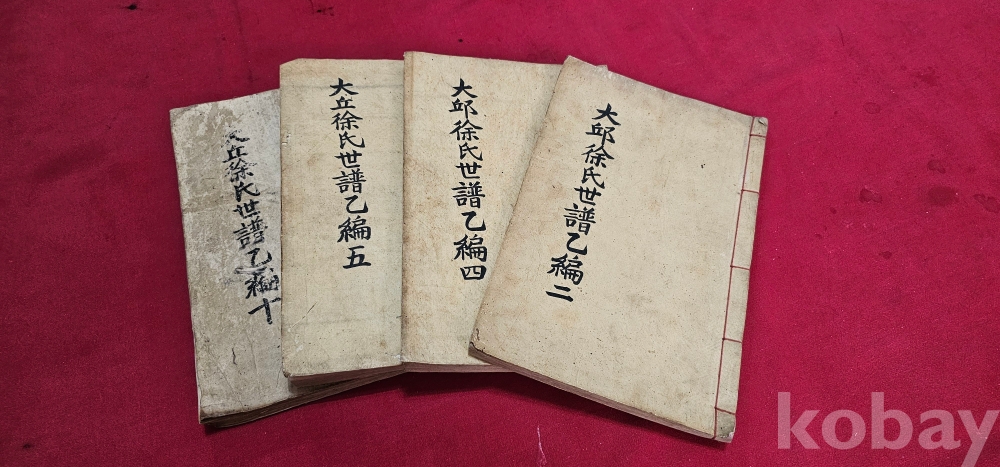 大丘徐氏世譜乙編十
大丘徐氏世譜乙編五
大邱徐氏世譜乙編四
大邱徐氏世譜乙編二
kobay